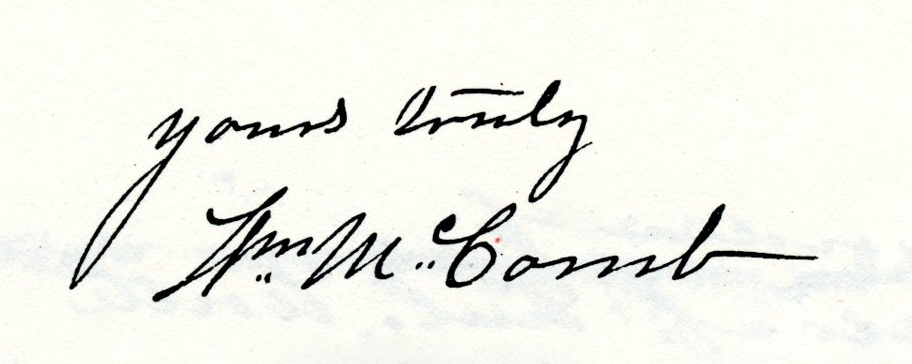 yours truly
Wm McComb